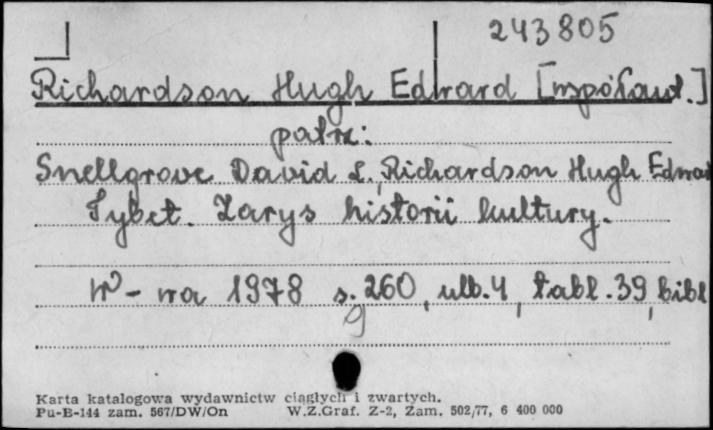 243805
Richardson Hugh Edward [współaut.]
patrz:
Snellgrove David L., Richardson Hugh Edward
Tybet. Zarys historii kultury.
W-wa 1978 s. 260, ulb. 4, tabl. 39, bibl
g
Karta katalogowa wydawnictw ciągłych i zwartych.
Pu-B-144 zam. 567/DW/On W.Z.Graf. Z-2, Zam. 502/77, 6 400 000